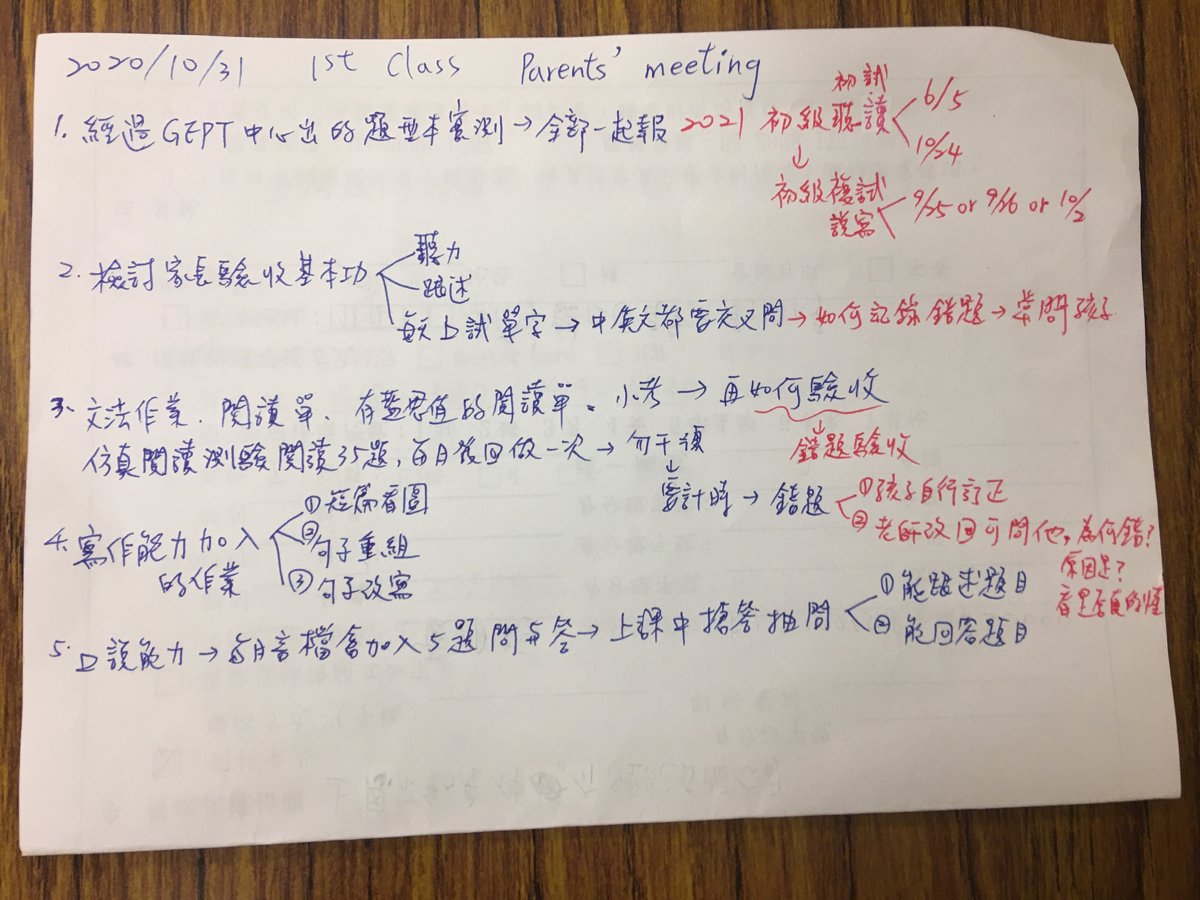 2020/10/31 1st Class Parents' meeting
1. 經過GEPT中心出的題型本實測→全部一起報 2021 初級聽讀 初試 6/5
10/24
↓
初級複試 說寫 9/25 or 9/26 or 10/2
2. 檢討家長驗收基本功 聽力
跟述
每天上試單字→中英文都要交叉問→如何記錄錯題→常問孩子
3. 文法作業、閱讀單、有蓋思值的閱讀單。小考→再如何驗收
↓
錯題驗收
仿真閱讀測驗閱讀35題,每月發回做一次→勿干預
↓
要計時→錯題 ①孩子自行訂正
②老師改回可問他,為何錯?
原因是?
看是否真的懂
4. 寫作能力加入的作業 ①短篇看圖
②句子重組
③句子改寫
5. 口說能力→每月音檔會加入5題問與答→上課中搶答抽問 ①能跟述題目
②能回答題目